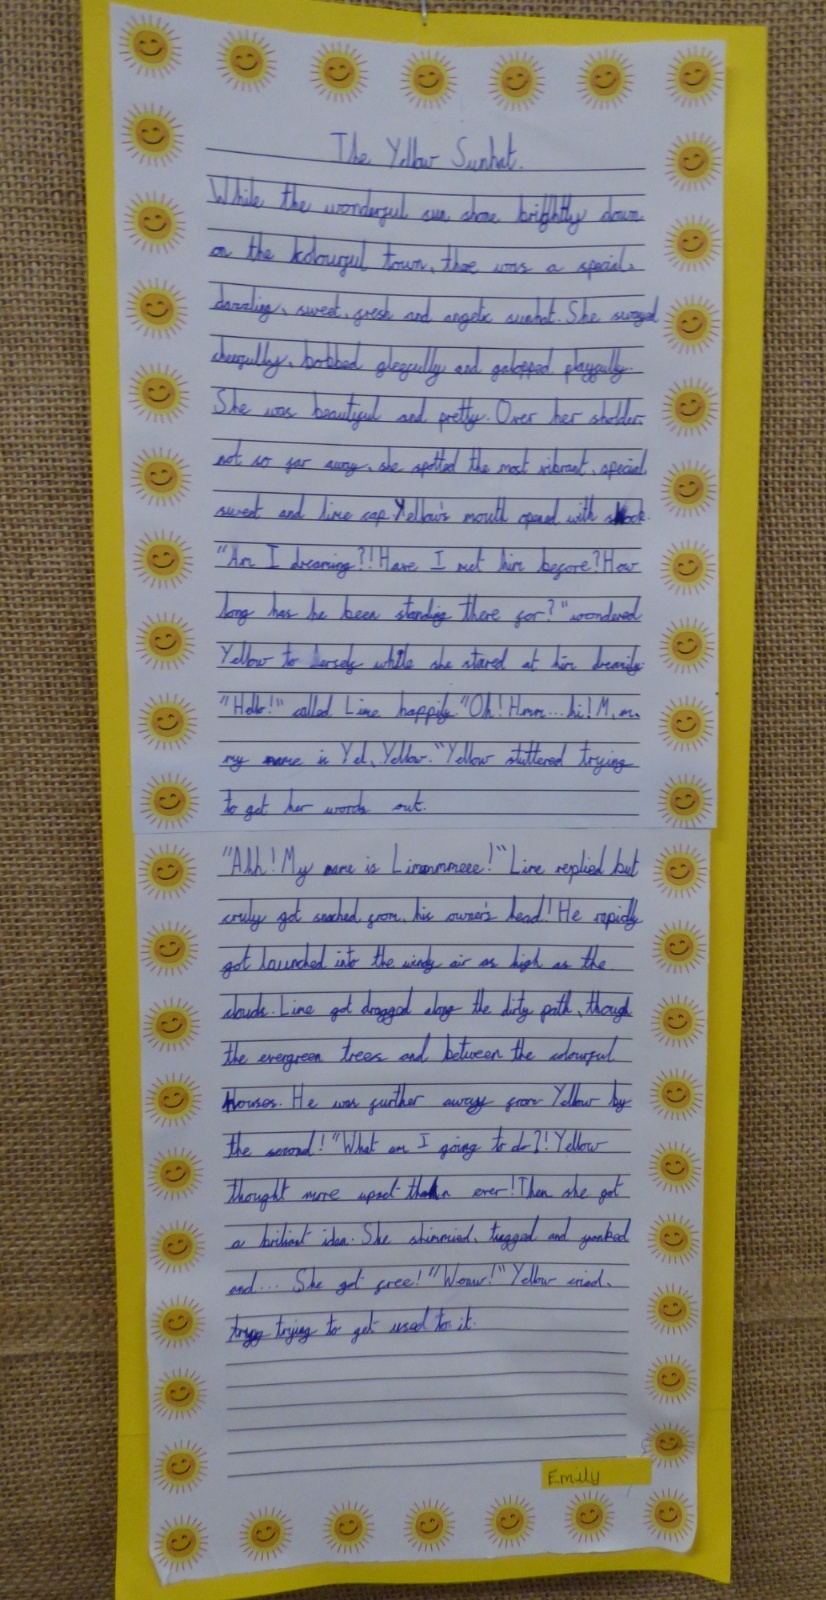 The Yellow Sunhat.
While the wonderful sun shone brightly down
on the kolourful town, thee was a special,
dazzling, sweet, fresh and angelic sunhat. She swayed
cheerfully, bobbed gleefully and galopped playfully.
She was beautiful and pretty. Over her sholder,
not so far away, she spotted the most vibrant, special
sweet and lime cap. Yellow's mouth opened with shock.
"Am I dreaming?! Have I met him before? How
long has he been standing there for?" wondered
Yellow to herself while she stared at him dreamily
"Hello!" called Lime happily "Oh! Hmm... hi! M, m,
my name is Yel, Yellow." Yellow stuttered trying
to get her words out.
"Ahh! My name is Limmmmeee!" Lime replied but
cruly got snached from, his owner's head! He rapidly
got launched into the windy air as high as the
clouds. Lime got dragged along the dirty path, though
the evergreen trees and between the colourful
Houses. He was further away from Yellow by
the second! "What am I going to do?! Yellow
thought more upset than ever! Then she got
a briliant idea. She shimmied, tugged and yanked
and... She got free! "Wouw!" Yellow cried,
trying to get used to it.
Emily